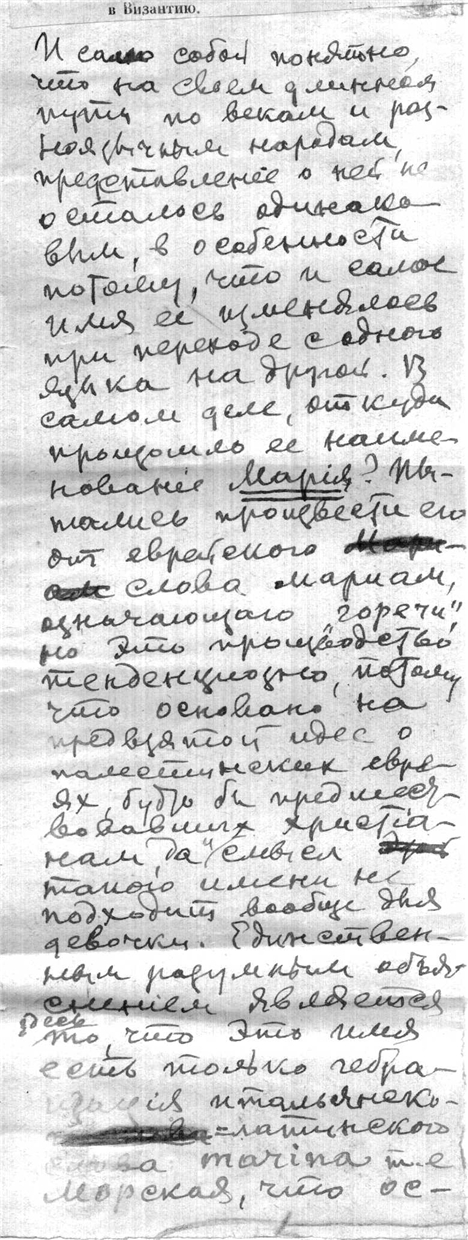 в Византию.
И само собой понятно,
что на своем длинном
пути по векам и раз-
ноязычным народам,
представление о ней не
осталось одинако-
вым, в особенности
потому, что и самое
имя ее изменялось
при переходе с одного
языка на другой. В
самом деле, откуда
произошло ее наиме-
нование Марія? Пы-
тались произвести его
от еврейского
слова мариам,
означающаго "горечь",
но это производство
тенденциозно, потому
что основано на
предвзятой идее о
палестинских евре-
ях, будто бы предшест-
вовавших христіа-
нам, да и смысл
такого имени не
подходит вообще для
девочки. Единствен-
ным разумным объяс-
нением является
здесь
то, что это имя
есть только гебра-
изація итальянско-
=латинского
слова marina т.е
морская, что ос-